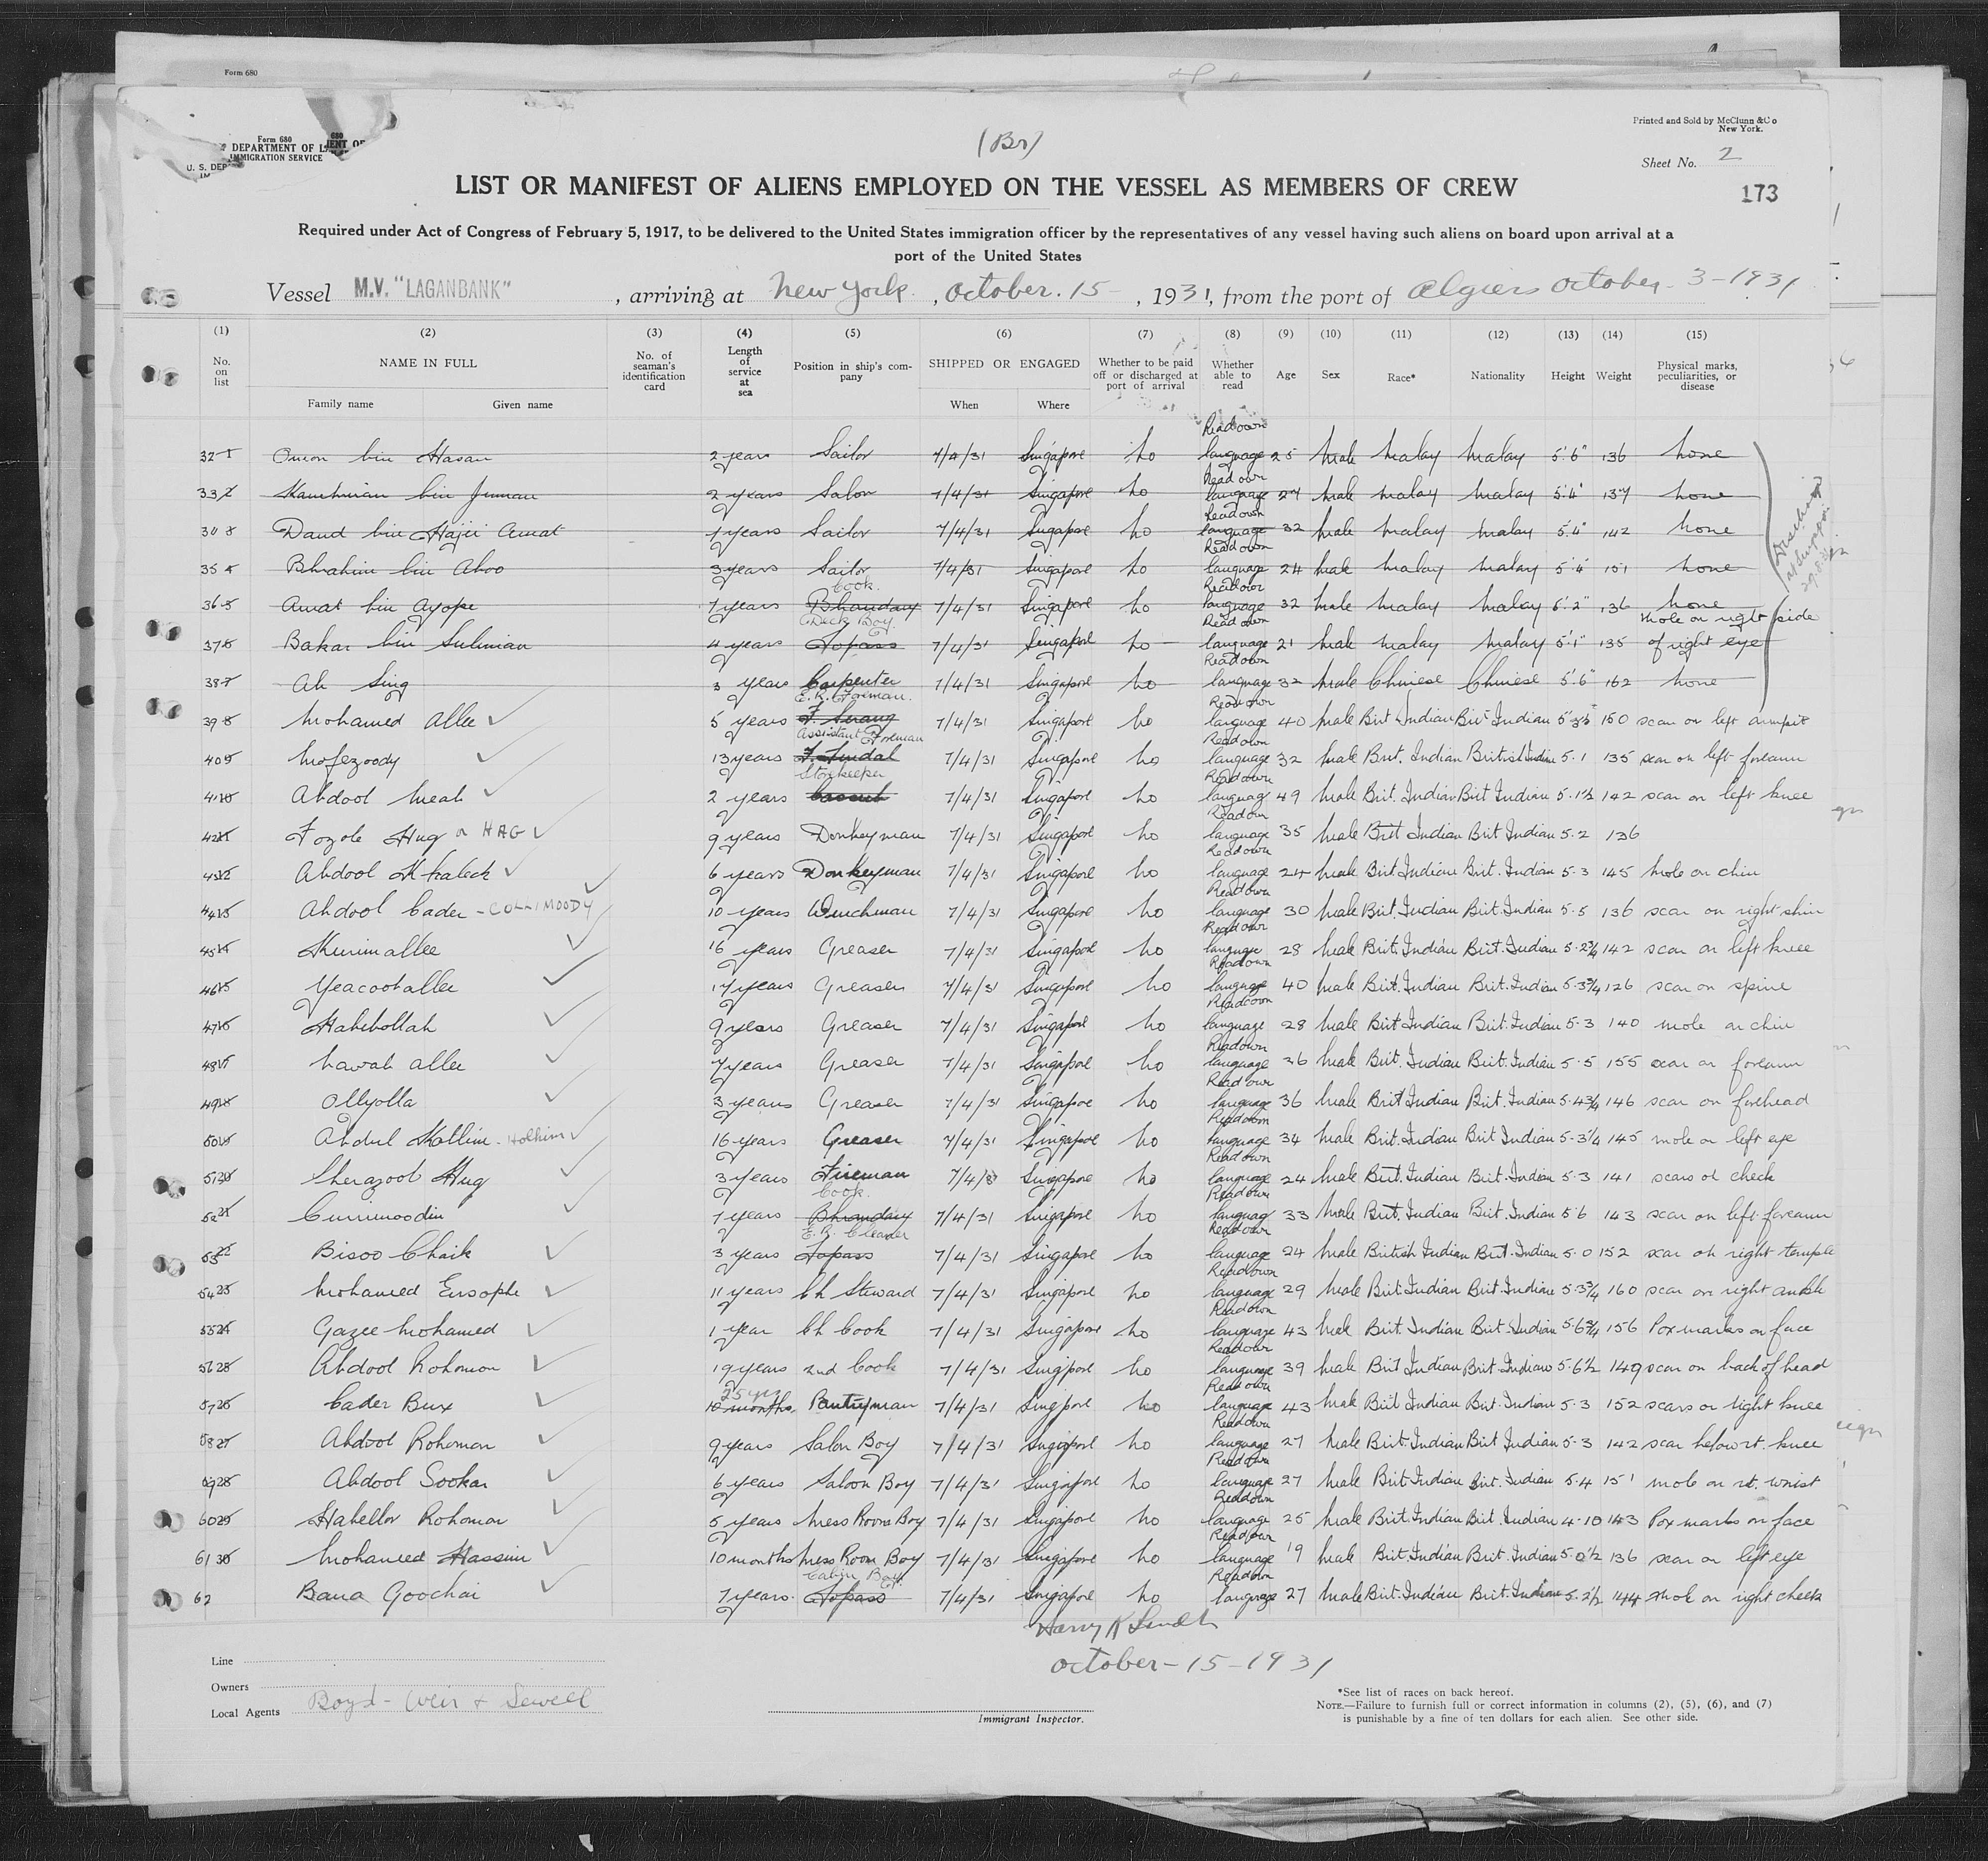 Form 680
Form 680
DEPARTMENT OF
IMMIGRATION SERVICE
U. S. DEP
(Br)
Printed and Sold by McClunn & Co
New York.
Sheet No. 2
LIST OR MANIFEST OF ALIENS EMPLOYED ON THE VESSEL AS MEMBERS OF CREW
173
Required under Act of Congress of February 5, 1917, to be delivered to the United States immigration officer by the representatives of any vessel having such aliens on board upon arrival at a
port of the United States
Vessel M.V. "LAGANBANK", arriving at New York, October 15, 1931, from the port of Algiers October 3-1931
(1) (2) (3) (4) (5) (6) (7) (8) (9) (10) (11) (12) (13) (14) (15)
No. on list NAME IN FULL Family name Given name No. of seaman's identification card Length of service at sea Position in ship's company SHIPPED OR ENGAGED When Where Whether to be paid off or discharged at port of arrival Whether able to read Age Sex Race* Nationality Height Weight Physical marks, peculiarities, or disease
32 Omon bin Hasan 2 years Sailor 7/4/31 Singapore No Read own language 25 Male Malay Malay 5'6" 136 None
33 bin 2 years Sailor 7/4/31 Singapore No Read own language 27 Male Malay Malay 5'4" 137 None
34 Daud bin Hajii Amat years Sailor 7/4/31 Singapore No Read own language 32 Male Malay Malay 5'4" 142 None
35 Bhrahim bin Aboo 3 years Sailor 7/4/31 Singapore No Read own language 24 Male Malay Malay 5'4" 151 None
36 Amat bin Ayope 7 years Bhandary Cook 7/4/31 Singapore No Read own language 32 Male Malay Malay 5'2" 136 None
37 Bakar bin Suliman 4 years Topass Deck Boy 7/4/31 Singapore No Read own language 21 Male Malay Malay 5'1" 135 Mole on right side of right eye
38 Ah Sing 3 year Carpenter 7/4/31 Singapore No Read own language 32 Male Chinese Chinese 5'6" 162 None
39 Mohamed Allee 5 years F. Serang E.R. Foreman 7/4/31 Singapore No Read own language 40 Male Brit Indian Brit Indian 150 scar on left armpit
40 Mofezoody 13 years F. Tindal Assistant Foreman 7/4/31 Singapore No Read own language 32 Male Brit. Indian British Indian 5.1 135 scar on left forearm
41 Abdool Meah 2 years Cassub Storekeeper 7/4/31 Singapore No Read own language 49 Male Brit. Indian Brit Indian 5.1½ 142 scar on left knee
42 Fozole Hug or HAG 9 years Donkeyman 7/4/31 Singapore No Read own language 35 Male Brit Indian Brit Indian 5.2 136
43 Abdool Khaleck 6 years Donkeyman 7/4/31 Singapore No Read own language 24 Male Brit Indian Brit. Indian 5.3 145 Mole on chin
44 Abdool Cader - COLLIMOODY 10 years Winchman 7/4/31 Singapore No Read own language 30 Male Brit. Indian Brit. Indian 5.5 136 scar on right shin
45 Kurimallee 16 years Greaser 7/4/31 Singapore No Read own language 28 Male Brit. Indian Brit. Indian 5.2¾ 142 scar on left knee
46 Yeacooballee 17 years Greaser 7/4/31 Singapore No Read own language 40 Male Brit. Indian Brit. Indian 5.3¾ 126 scar on spine
47 Habibollah 9 years Greaser 7/4/31 Singapore No Read own language 28 Male Brit Indian Brit. Indian 5.3 140 mole on chin
48 Nawab Allee 7 years Greaser 7/4/31 Singapore No Read own language 36 Male Brit. Indian Brit. Indian 5.5 155 scar on forearm
49 Ollyolla 3 years Greaser 7/4/31 Singapoe No Read own language 36 Male Brit Indian Brit. Indian 5.4¾ 146 scar on forehead
50 Abdul Hallim - Holhim 16 years Greaser 7/4/31 Singapore No Read own language 34 Male Brit. Indian Brit Indian 5.3¼ 145 mole on left eye
51 Sherazool Hug 3 years Fireman 7/4/31 Singapore No Read own language 24 Male Brit. Indian Brit. Indian 5.3 141 scars of cheek
52 Currimoodin 7 years Bhandary Cook 7/4/31 Singapore No Read own language 33 Male Brit. Indian Brit. Indian 5.6 143 scar on left forearm
53 Bisoo Chaik 3 years Topass E.R. Cleaner 7/4/31 Singapore No Read own language 24 Male British Indian Brit. Indian 5.0 152 scar on right temple
54 Mohamed Eusophe 11 years Ch Steward 7/4/31 Singapore No Read own language 29 Male Brit. Indian Brit. Indian 5.3¾ 160 scar on right ankle
55 Gazee Mohamed 1 year Ch Cook 7/4/31 Singapore No Read own language 43 Male Brit. Indian Brit. Indian 5.6¾ 156 Pox marks on face
56 Abdool Rohomon 19 years 2nd Cook 7/4/31 Singapore No Read own language 39 Male Brit Indian Brit. Indian 5.6½ 149 scar on back of head
57 Cader Bux 10 months 25 yrs Pantryman 7/4/31 Singapore No Read own language 43 Male Brit Indian Brit. Indian 5.3 152 scars on right knee
58 Abdool Rohoman 9 years Salon Boy 7/4/31 Singapore No Read own language 27 Male Brit. Indian Brit Indian 5.3 142 scar below rt. knee
59 Abdool Sookar 6 years Saloon Boy 7/4/31 Singapore No Read own language 27 Male Brit Indian Brit. Indian 5.4 151 mole on rt. wrist
60 Habellor Rohoman 5 years Mess Room Boy 7/4/31 Singapore No Read own language 25 Male Brit. Indian Brit. Indian 4.10 143 Pox marks on face
61 Mohamed Hassim 10 months Mess Room Boy 7/4/31 Singapore No Read own language 19 Male Brit. Indian Brit. Indian 5.0½ 136 scar on left eye
62 Bana Goochai 7 years Topass Cabin Boy 7/4/31 Singapore No Read own language 27 Male Brit. Indian Brit. Indian 5.2½ 144 Mole on right cheek
October-15-1931
Line
Owners
Local Agents Boyd-Weir & Sewell
Immigrant Inspector.
*See list of races on back hereof.
NOTE.—Failure to furnish full or correct information in columns (2), (5), (6), and (7)
is punishable by a fine of ten dollars for each alien. See other side.